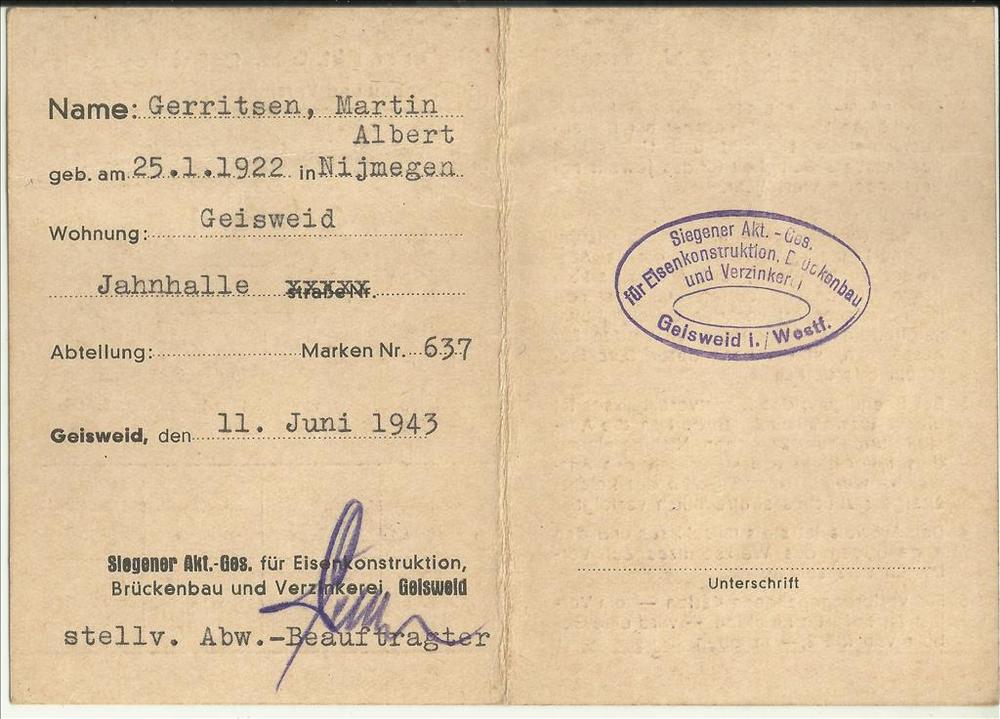 Name: Gerritsen, Martin
Albert
geb. am 25.1.1922 in Nijmegen
Wohnung: Geisweid
Jahnhalle
Abteilung: Marken Nr. 637
Geisweid, den 11. Juni 1943
Siegener Akt.-Ges. für Eisenkonstruktion,
Brückenbau und Verzinkerei, Geisweid
stellv. Abw.-Beauftragter
Siegener Akt.-Ges.
für Eisenkonstruktion, Brückenbau
und Verzinkerei
Geisweid i./Westf.
Unterschrift